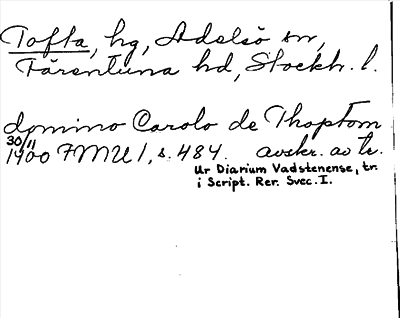 Tofta, hg, Adelsö sn,
Färentuna hd, Stockh. l.
domino Carolo de Thoptom
30/11
1400 FMU 1, s. 484. avskr. av tr.
Ur Diarium Vadstenense, tr.
i Script. Rer. Svec. I.